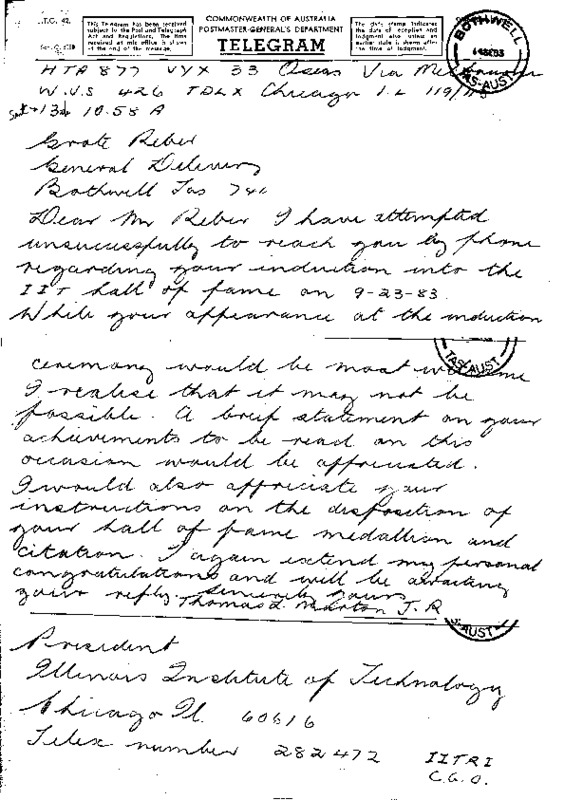 T.G. 42.
This Telegram has been received subject to the Post and Telegraph Act and Regulations. The time received at this office is shown at the end of the message.
COMMONWEALTH OF AUSTRALIA
POSTMASTER-GENERAL'S DEPARTMENT
TELEGRAM
The date stamp indicates the date of reception and lodgment also unless an earlier date is shown after the time of lodgment.
BOTHWELL
14SE83
TAS-AUST
HTA 877 VYX 33 Oseas Via Melbourne
W.U.S 426 TDLX Chicago I.L 119/115
13th 10.58 A
Grote Reber
General Delivery
Bothwell Tas
Dear Mr Reber I have attempted
unsuccessfully to reach you by phone
regarding your induction into the
IIT hall of fame on 9-23-83.
While your appearance at the induction
TAS-AUST
ceremony would be most welcome
I realise that it may not be
possible. A brief statement on your
achievements to be read on this
occasion would be appreciated.
I would also appreciate your
instructions on the disposition of
your hall of fame medallion and
citation. I again extend my personal
congratulations and will be awaiting
your reply. Sincerely yours
Thomas L Marton J.R
S-AUST
President
Illinois Institute of Technology
Chicago Il. 60616
Telex number 282472 IITRI
C.G.O.